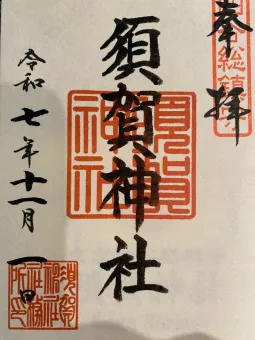 奉拝
総鎮
須賀神社
須賀
神社
令和七年十一月一日
須賀
神社
社務
所印